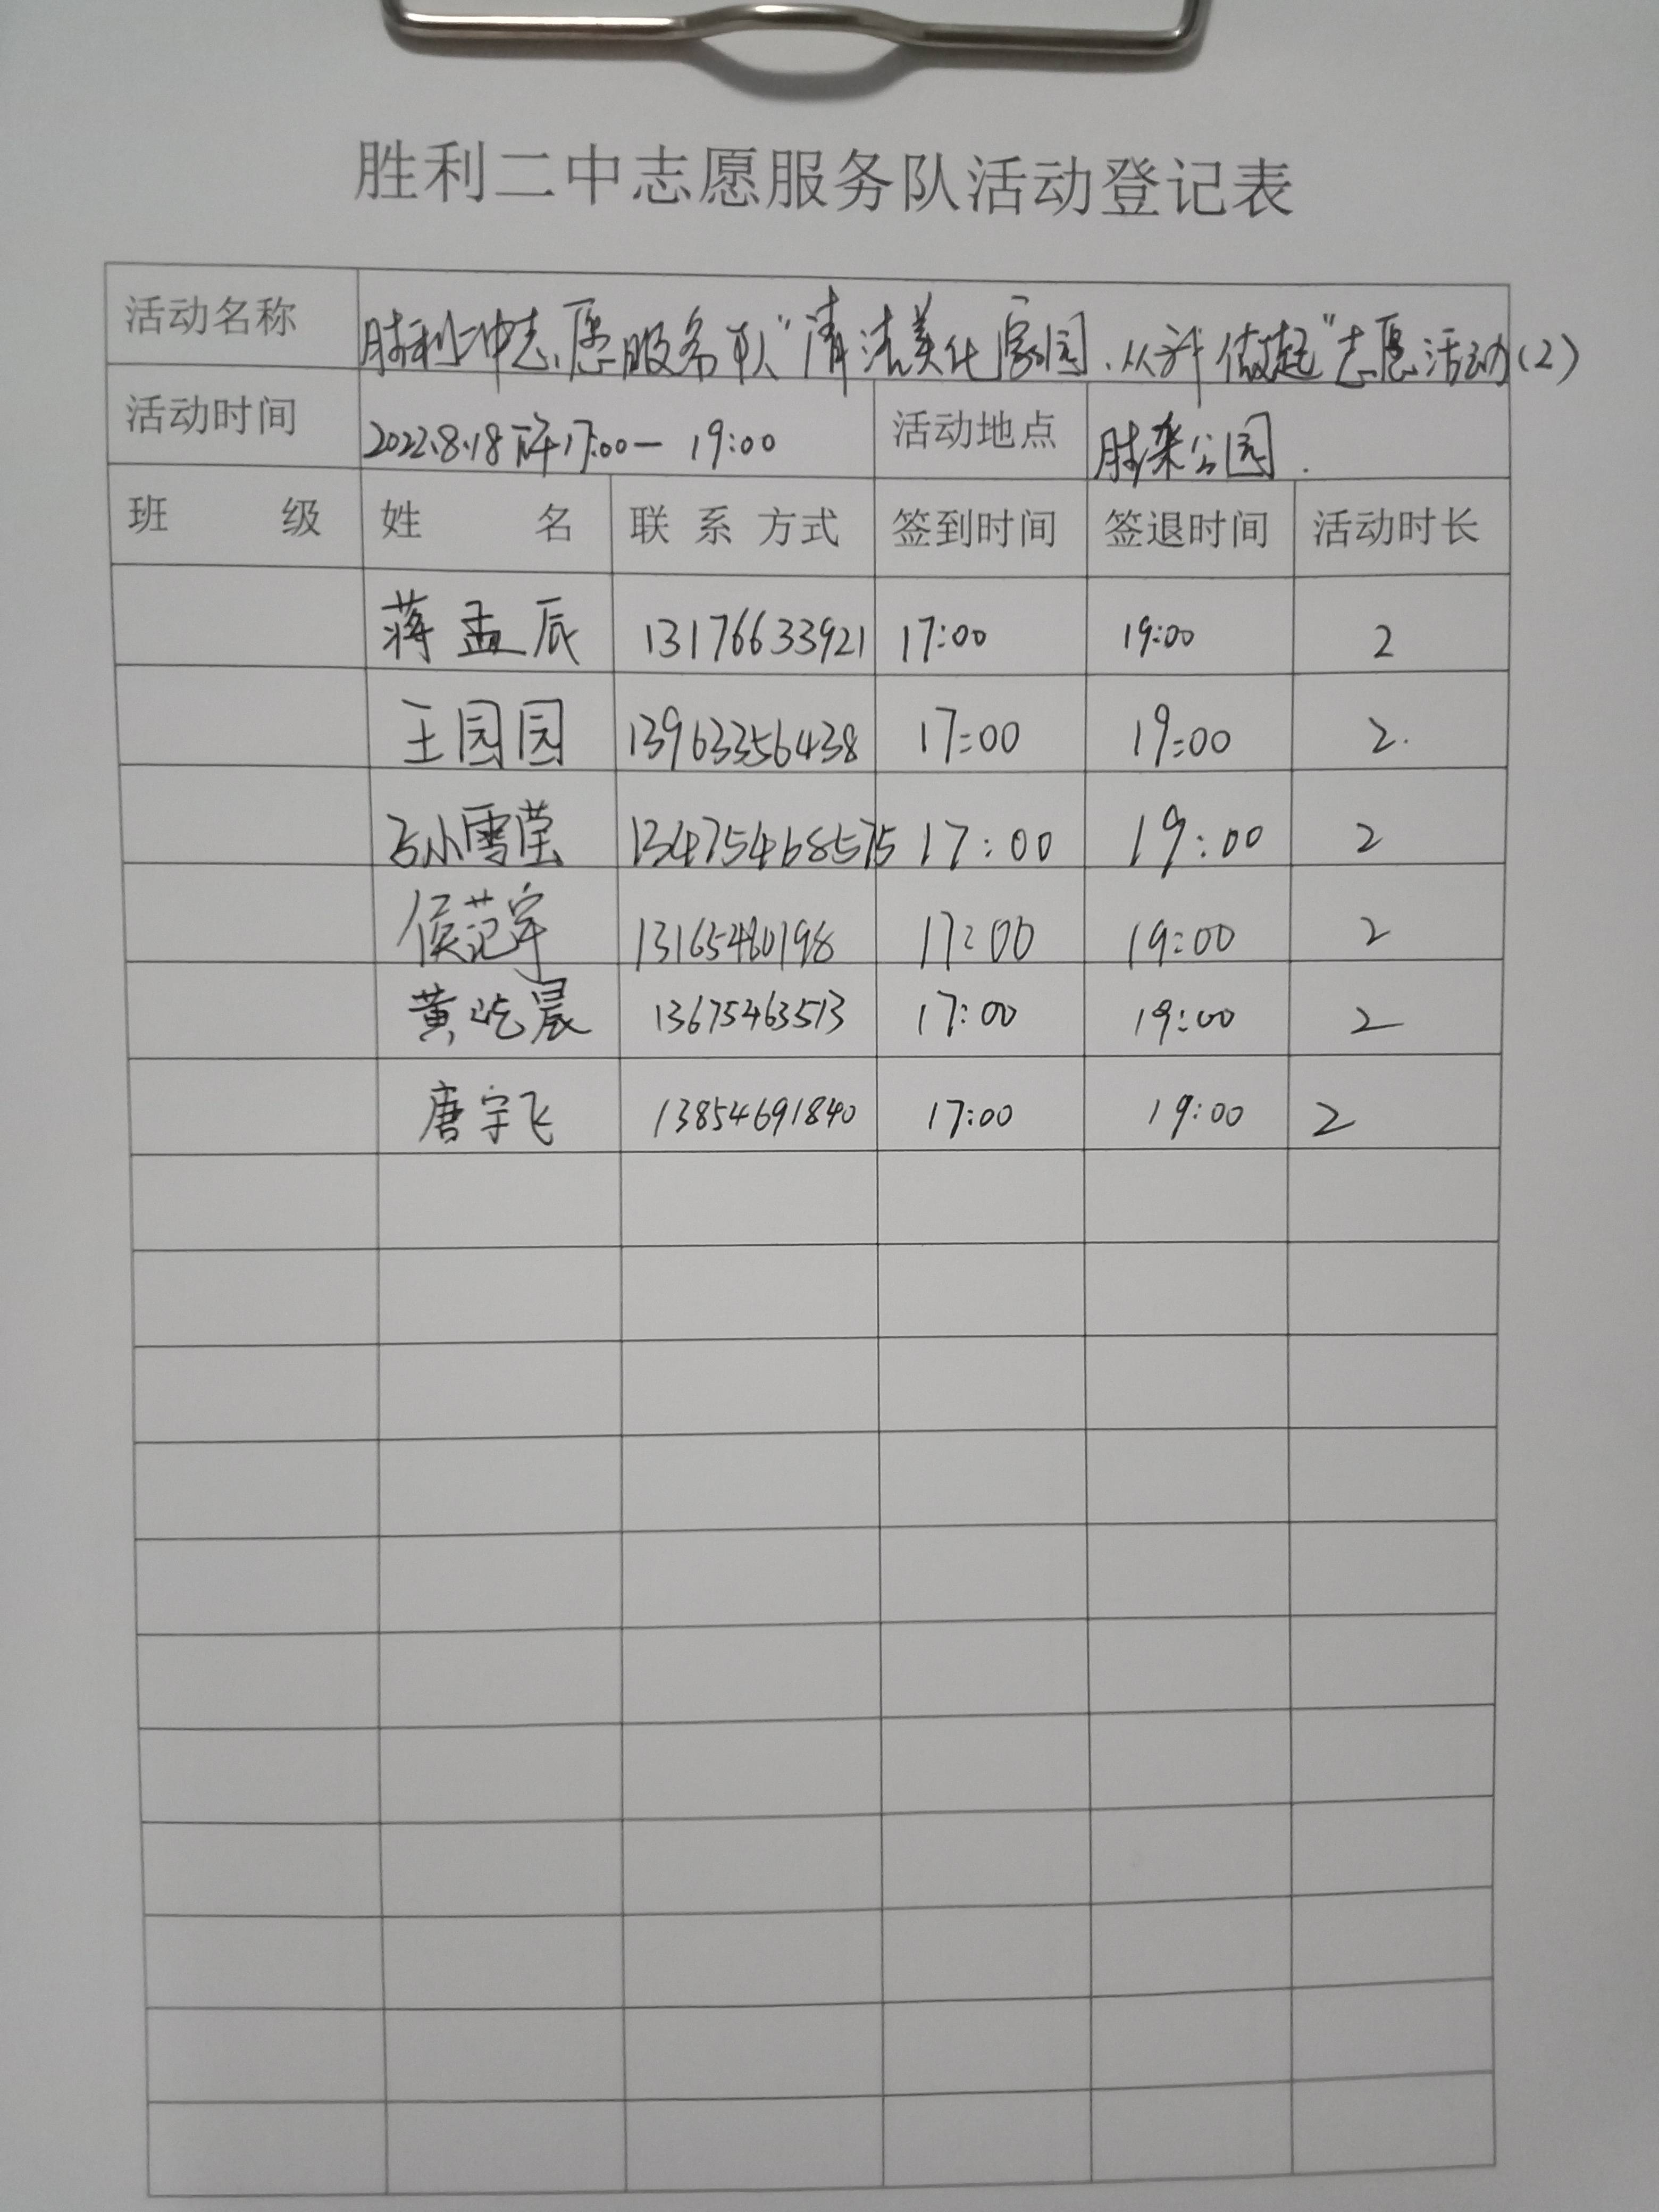 胜利二中志愿服务队活动登记表
活动名称 胜利二中志愿服务队“清洁美化家园、从我做起”志愿活动(2)
活动时间 2022.8.18 下午17:00— 19:00 活动地点 胜采公园.
班 级 姓 名 联 系 方式 签到时间 签退时间 活动时长
蒋孟辰 13176633921 17:00 19:00 2
王园园 13963356438 17:00 19:00 2.
孙雪莹 13475468575 17:00 19:00 2
侯范宇 13165460198 17:00 19:00 2
黄屹晨 13675463513 17:00 19:00 2
唐宇飞 13854691840 17:00 19:00 2